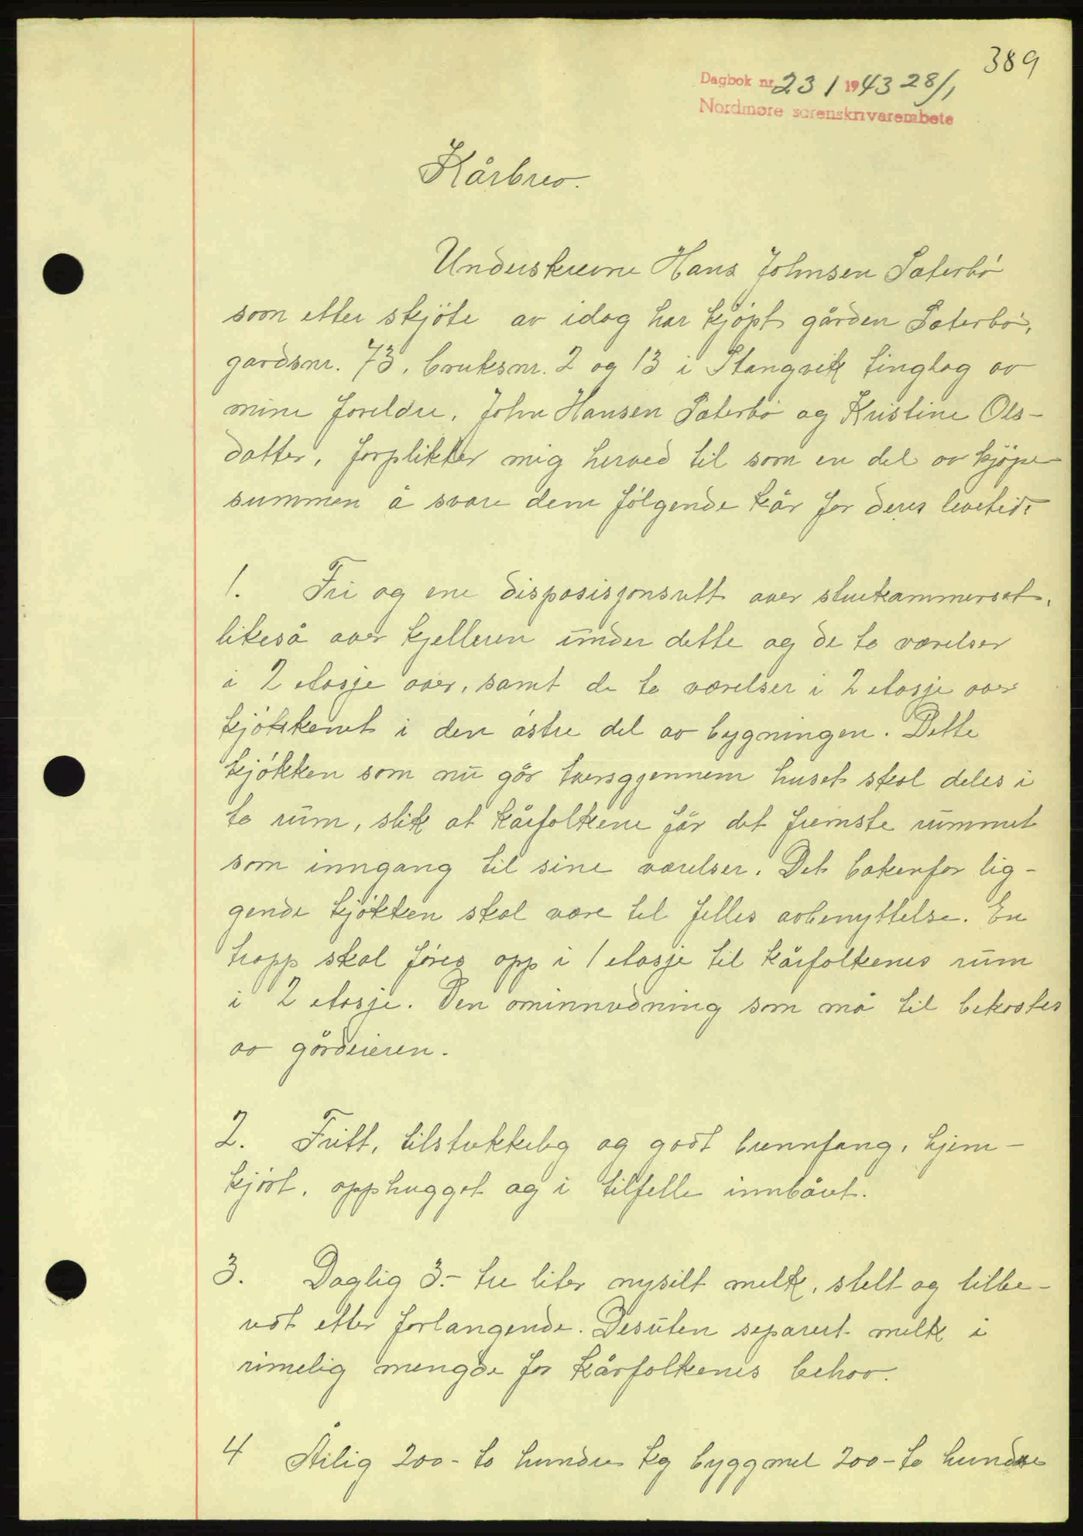 389
Dagbok nr. 231 1943 28/1
Nordmøre sorenskrivarembete
Kårbrev.
Underskrevne Hans Johnsen Sæterbö
som etter skjöte av idag har kjöpt gården Sæterbö,
gardsnr. 73, bruksnr. 2 og 13 i Stangvik tinglag av
mine foreldre, John Hansen Sæterbö og Kristine Ols-
datter, forplikter mig herved til som en del av kjöpe-
summen å svare dem fölgende kår for deres levetid:
1. Fri og ene disposisjonsrett over stuekammerset,
likeså over kjelleren under dette og de to værelser
i 2 etasje over, samt de to værelser i 2 etasje over
kjökkenet i den östre del av bygningen. Dette
kjökken som nu går tversgjennem huset skal deles i
to rum, slik at kårfolkene får det fremste rummet
som inngang til sine værelser. Det bakenfor lig-
gende kjökken skal være til felles avbenyttelse. En
trapp skal föres opp i 1 etasje til kårfolkenes rum
i 2 etasje. Den ominnredning som må til bekostes
av gårdeieren.
2. Fritt, tilstrekkelig og godt brennfang, hjem-
kjört, opphugget og i tilfelle innbåret.
3. Daglig 3.- tre liter nysilt melk, stelt og tilbe-
redt etter forlangende. Desuten separert melk i
rimelig mengde for kårfolkenes behov.
4 Årlig 200- to hundre kg byggmel 200- to hundre